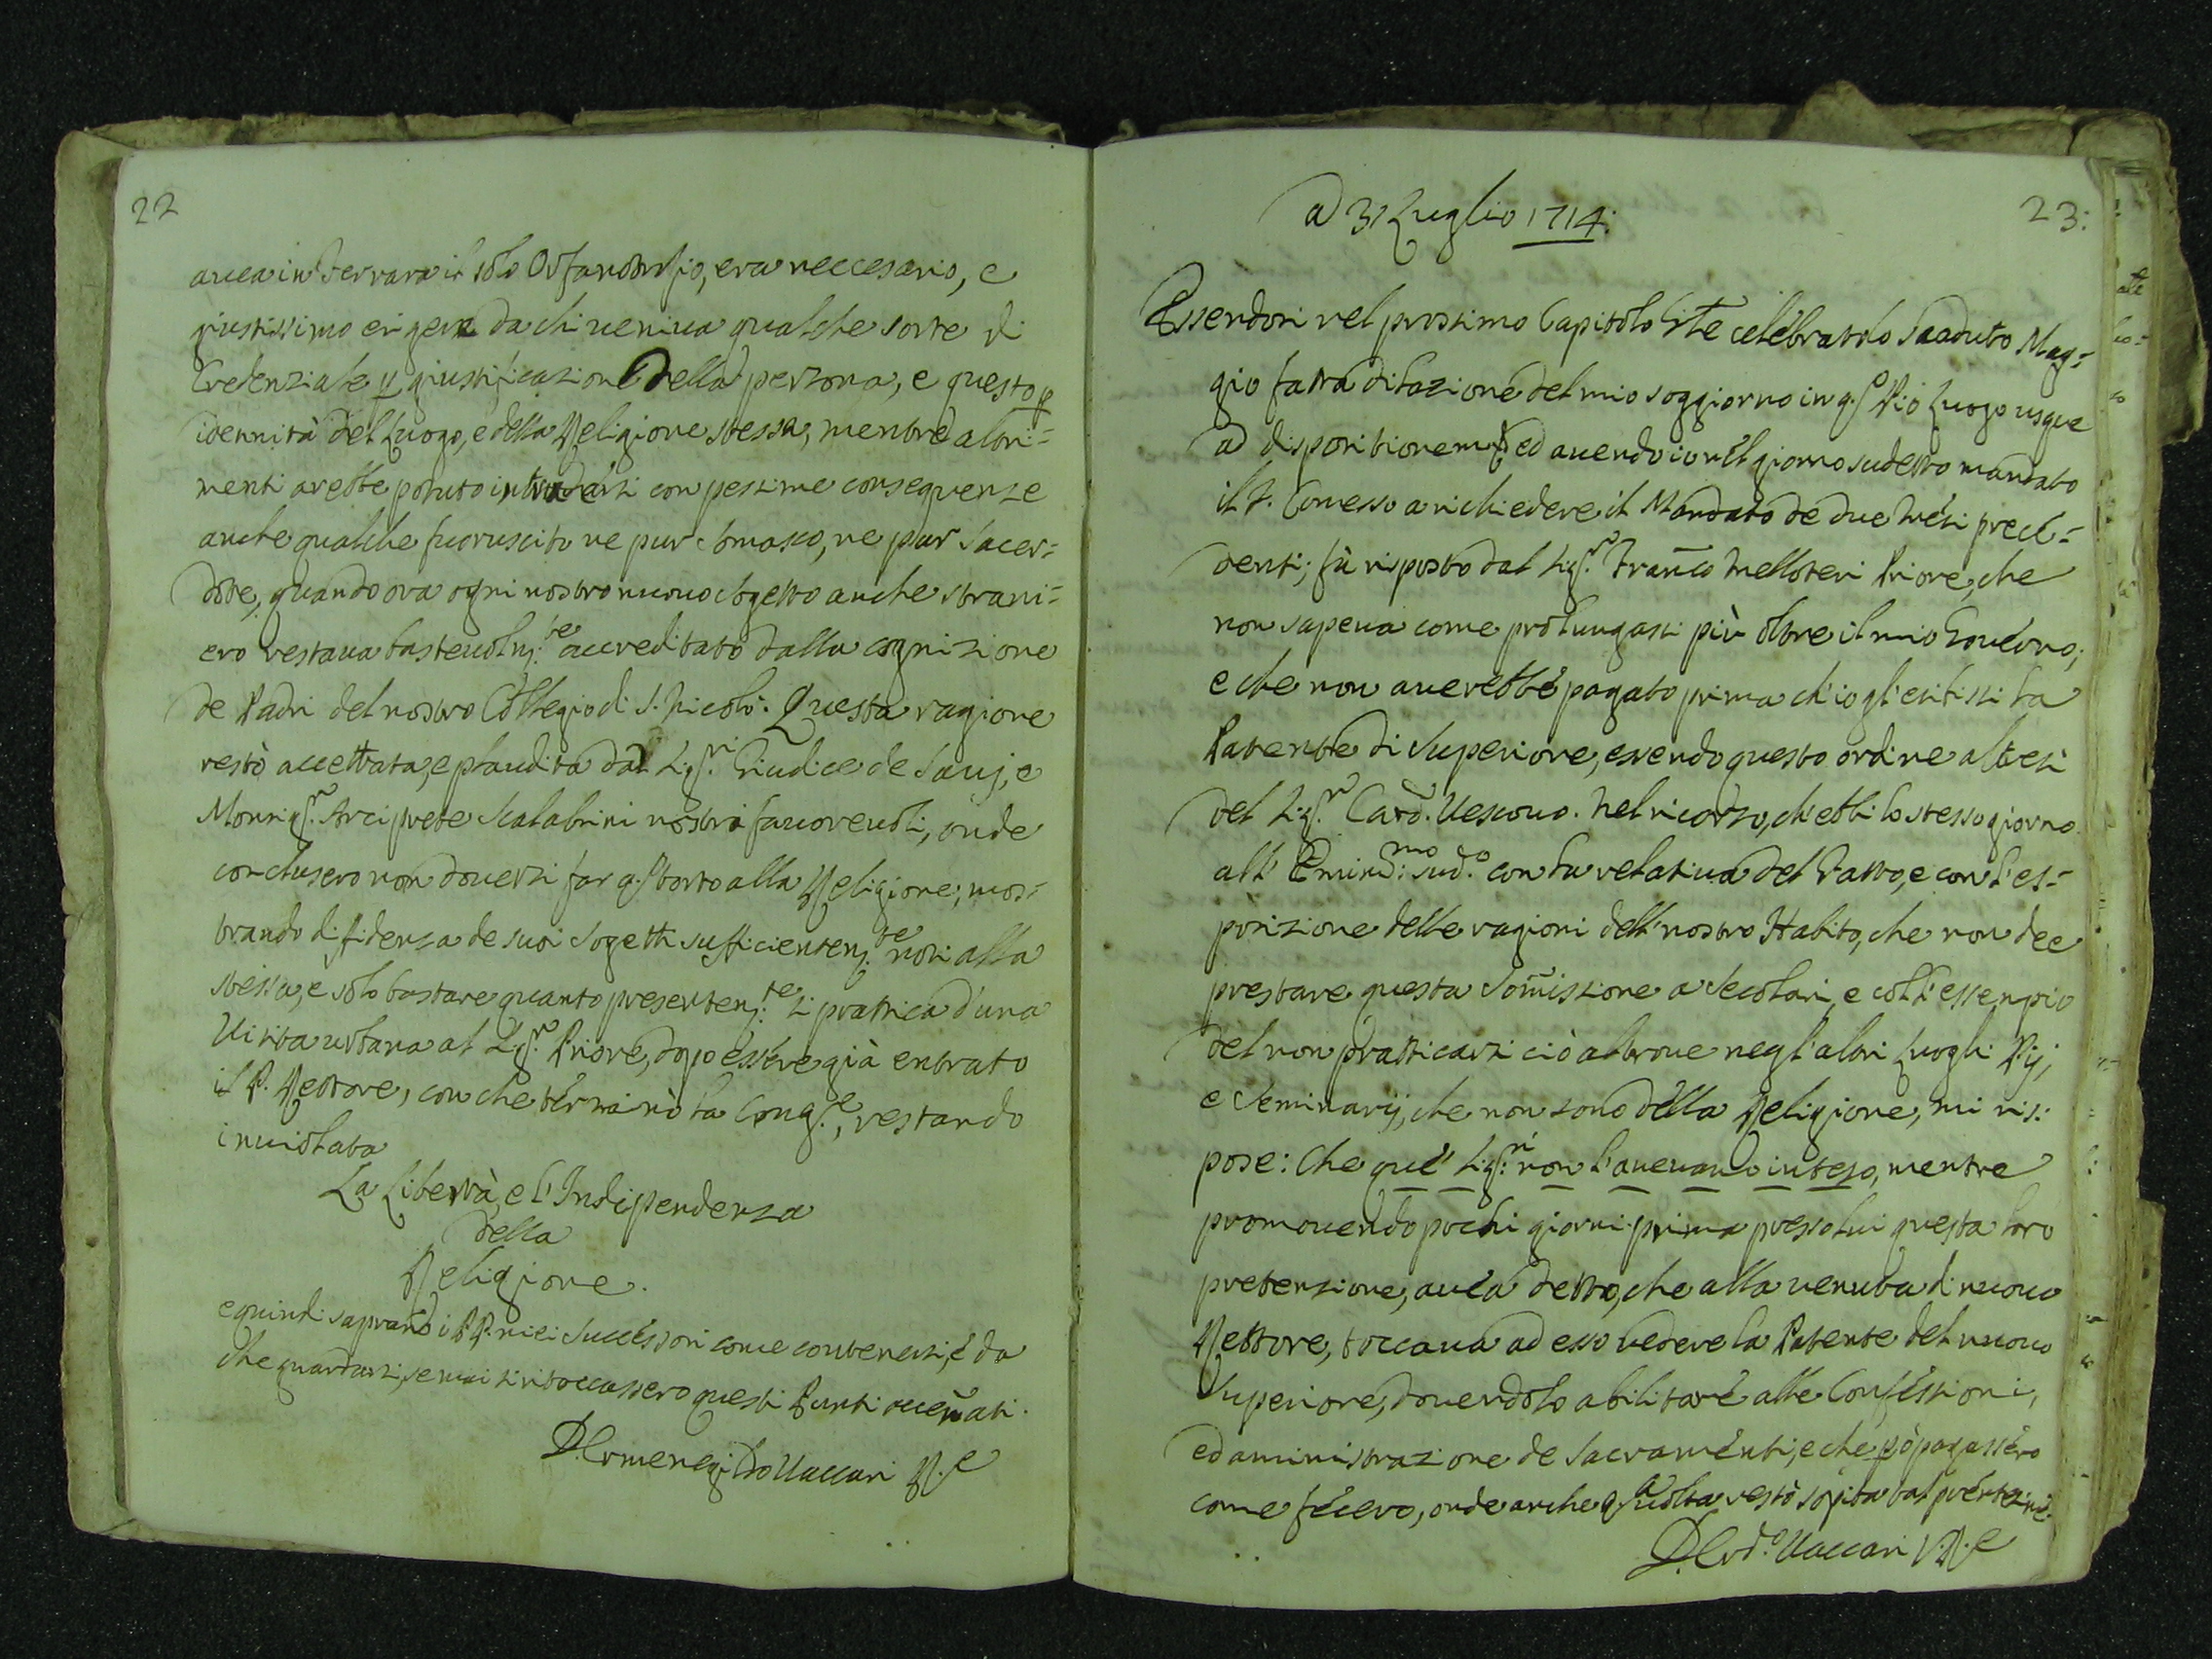 22
auea in Ferrara il solo Orfanotrofio, era neccesario, e
giustissimo esigere da chi ueniua qualche sorte di
Credenziale p giustificazione della persona, e questo p
idennità del Luogo, e della Religione stessa, mentre altri=
menti arebbe potuto introdursi con pessime conseguenze
anche qualche fuoruscito ne pur Somasco, ne pur Sacer=
dote, quando ora ogni nostro nuouo Sogetto anche strani=
ero restaua basteuolm:te accreditato dalla cognizione
de Padri del nostro Collegio di S. Nicolò. Questa ragione
restò accettata, e plaudita dal Sig.r Giudice de Sauj, e
Monsig.r Arciprete Scalabrini nostri fauoreuoli, onde
conclusero non douersi far q.sto torto alla Religione, mos=
trando difidenza de suoi Sogetti sufficientem:te noti alla
stessa, e solo bastare quanto presentem:te si prattica d'una
Visita urbana al Sig.r Priore, dopo essere già entrato
il P. Rettore, con che terminò la Cong.e, restando
inuiolata
La Libertà, e l'Indipendenza
della
Religione.
e quindi sapranno i PP. miei Successori come contenersi, e da
che guardarsi, se mai si ritoccassero questi Punti accen̄ati.
D. Ermenegildo Vaccari R.e
23:
A 31 Luglio 1714:
Essendosi nel prossimo Capitolo G̅n̅le celebratosi scaduto Mag=
gio fatta dilazione del mio soggiorno in q.sto Pio Luogo usque
ad dispositionem, ed auendo io nel giorno sudetto mandato
il F. Comesso a richiedere il Mandato de due Mesi prece=
denti; fù risposto dal Sig.r Fran̄co Melloteri Priore, che
non sapeua come prolungassi più oltre il mio Gouerno;
e che non auerebbe pagato prima ch'io gl'esibissi la
Patente di Superiore, essendo questo ordine altresì
del Sig.r Card. Vescouo. Nel ricorso, ch'ebbi lo stesso giorno
all' Eminen:mo sud.o con la relatiua del Fatto, e con l'es=
posizione delle ragioni dell' nostro Habito, che non dee
prestare questa Som̄issione a Secolari, e coll'essempio
del non pratticarsi ciò altroue negl'altri Luoghi Pij,
e Seminarij, che non sono della Religione, mi ris:
pose: Che que' Sig:ri non l'aueuano inteso, mentre
promouendo pochi giorni prima presso lui questa loro
pretensione, auea detto, che alla uenuta di nuouo
Rettore, toccaua ad esso uedere la Patente del nuouo
Superiore, douendolo abilitare alle Confessioni,
ed aministrazione de Sacramenti, e che pò pagassero
come fecero, onde anche q.sta uolta restò sopita tal pretensne.
D. Erd.o Vaccari V. R.e